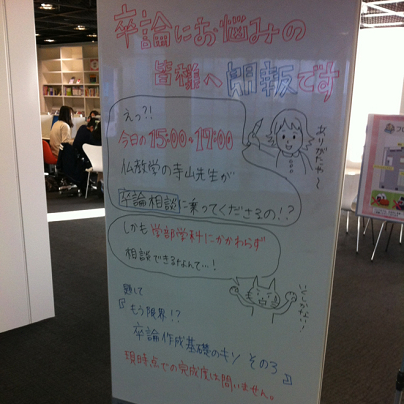 卒論にお悩みの
皆様へ朗報です
えっ?!
今日の15:00~17:00
仏教学の寺山先生が
卒論相談に乗ってくださるの!?
ありがたや~
しかも学部学科にかかわらず
相談できるなんて…!
いくしかない!
題して
『もう限界!?
卒論作成基礎のキソ その3』
現時点での完成度は問いません。